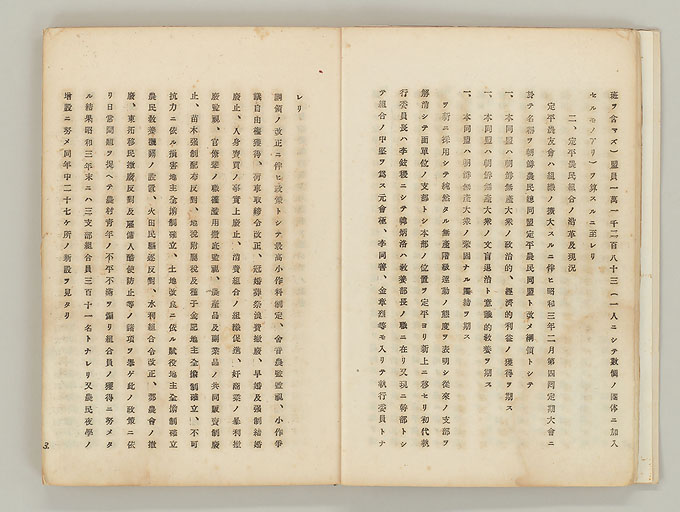 施ヲ含マズ)盟員一萬一千二百八十三(一人ニシテ數個ノ團体ニ加入
セルモノアリ)ヲ算スルニ至レリ
二、定平農民組合ノ沿革及現況
定平農友會ハ組織ノ擴大スルニ伴ヒ昭和三年二月第四囘定期大會ニ
於テ名稱ヲ朝鮮農民總同盟定平農民同盟ト改メ綱領トシテ
一、本同盟ハ朝鮮無產大衆ノ政治的、經濟的利益ノ獲得ヲ期ス
一、本同盟ハ朝鮮無產大衆ノ文盲退治ト意識的敎養ヲ期ス
一、本同盟ハ朝鮮無產大衆ノ鞏固ナル團結ヲ期ス
ヲ新ニ採用シテ純然タル無產階級運動ノ態度ヲ表明シ從來ノ支部ヲ
解消シテ面單位ノ支部トシ本部ノ位置ヲ定平ヨリ新上ニ移セリ初代執
行委員長ハ李ニシテ韓炳洛ハ敎養部長ノ職ニ在リ又現ニ幹部トシ
テ組合ノ中堅ヲ爲ス元會極、李同善、金章烈等モ入リテ執行委員トナ
レリ
綱領ノ改正ニ伴ヒ政策トシテ最高小作料制定、舍音農監監視、小作爭
議自由權獲得、荷車取締令改正、冠婚葬祭浪費撤廢、早婚及强制結婚
廢止、人身賣買ノ事實上廢止、消費組合ノ組織促進、奸商業ノ暴利撤
廢監視、官僚輩ノ職權濫用徹底監視、農產品及副業品ノ共同販賣制廢
止、苗木强制配布反對、地稅附屬稅及種子金肥地主全擔制確立、不可
抗力ニ依ル損害地主全擔制確立、土地改良ニ依ル賦役地主全擔制確立
農民敎養機關ノ設置、火田民驅逐反對、水利組合令改正、郡農會ノ撤
廢、東拓移民撤廢反對及雇傭人酷使防止等ノ諸項ヲ擧ゲ此ノ政策ニ依
リ日常鬪爭ヲ提ヘテ農村靑年ノ不平不滿ヲ煽リ組合員ノ獲得ニ努メタ
ル結果昭和三年末ニハ三支部組合員三百十一名トナレリ又農民夜學ノ
增設ニ努メ同年中二十七ケ所ノ新設ヲ見タリ